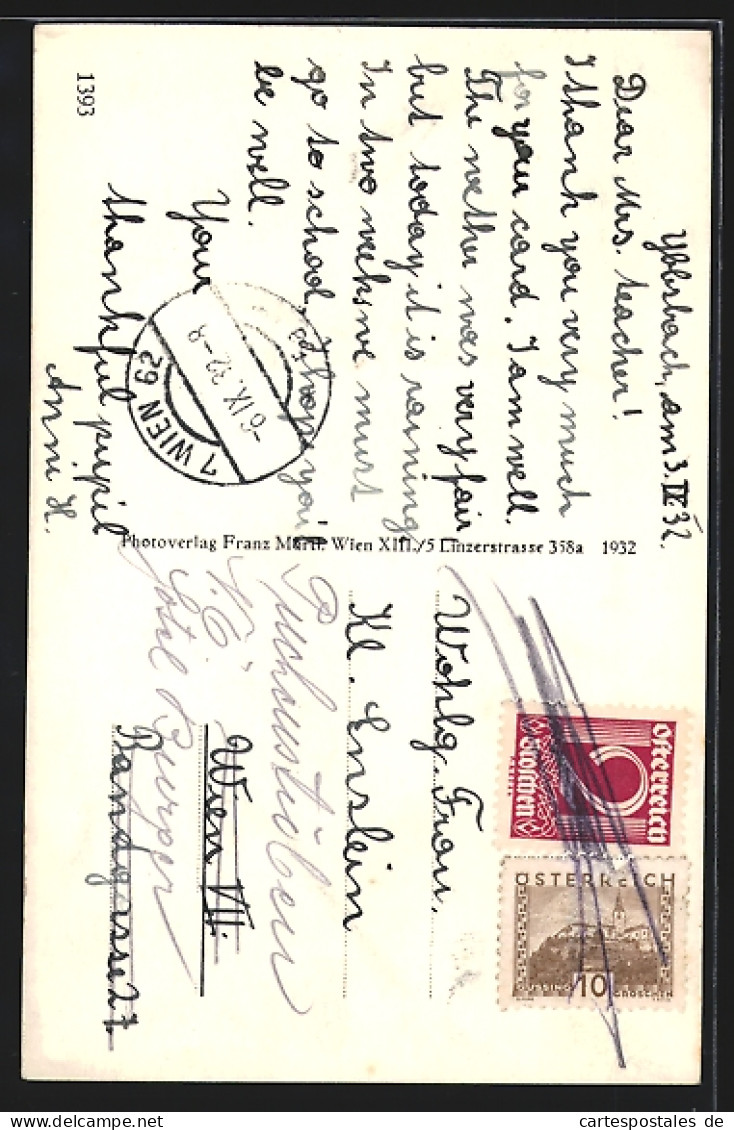 Ybbsbach, am 3. IX 32.
Dear Mrs. teacher!
I thank you very much
for your card. I am well.
The wether was very fair
but today it is raining.
In two weeks we murst
go to school. I hope you
be well.
Your
thankful pupil
Anni H.
1393
1 WIEN 62
-6.IX.32-8
Photoverlag Franz Mörtl, Wien XIII./5 Linzerstrasse 358a 1932
Wohlg. Frau.
Kl. Enslein
Wien VII.
Bandgasse 27
Puchenstuben
N.Ö.
Hotel Burger
Österreich
Groschen
ÖSTERREICH
GÜSSING
10
GROSCHEN
cartespostales de